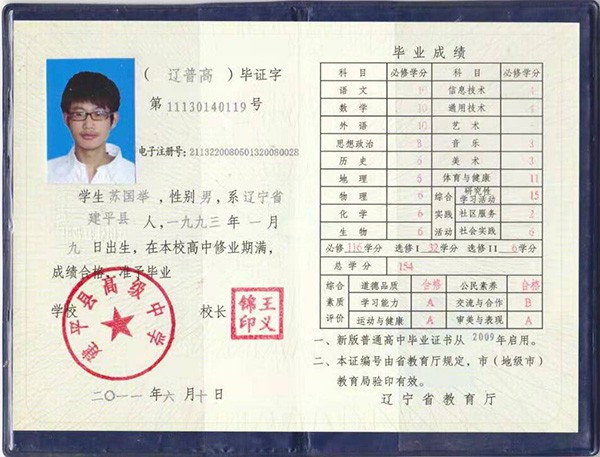 （辽普高）毕证字
第 11130140119 号
电子注册号: 211322080501320080028
学生 苏国举 , 性别 男 , 系 辽宁省
建平县 人 , 一九九三 年 一 月
九 日出生 , 在本校高中修业期满 ,
成绩合格 , 准予毕业
学校 校长
建平县高级中学
王义锦印
二〇一一 年 六 月 十 日
毕业成绩
科目 必修学分 科目 必修学分
语文 10 信息技术 4
数学 10 通用技术 4
外语 10 艺术
思想政治 8 音乐 3
历史 6 美术 3
地理 6 体育与健康 11
物理 6 综合实践活动 研究性学习活动 15
化学 6 社区服务 2
生物 6 社会实践 6
必修 116 学分 选修I 32 学分 选修II 6 学分
总学分 154
综合素质评价 道德品质 合格 公民素养 合格
学习能力 A 交流与合作 B
运动与健康 A 审美与表现 A
一、新版普通高中毕业证书从 2009 年启用。
二、本证编号由省教育厅规定，市（地级市）
教育局验印有效。
辽宁省教育厅